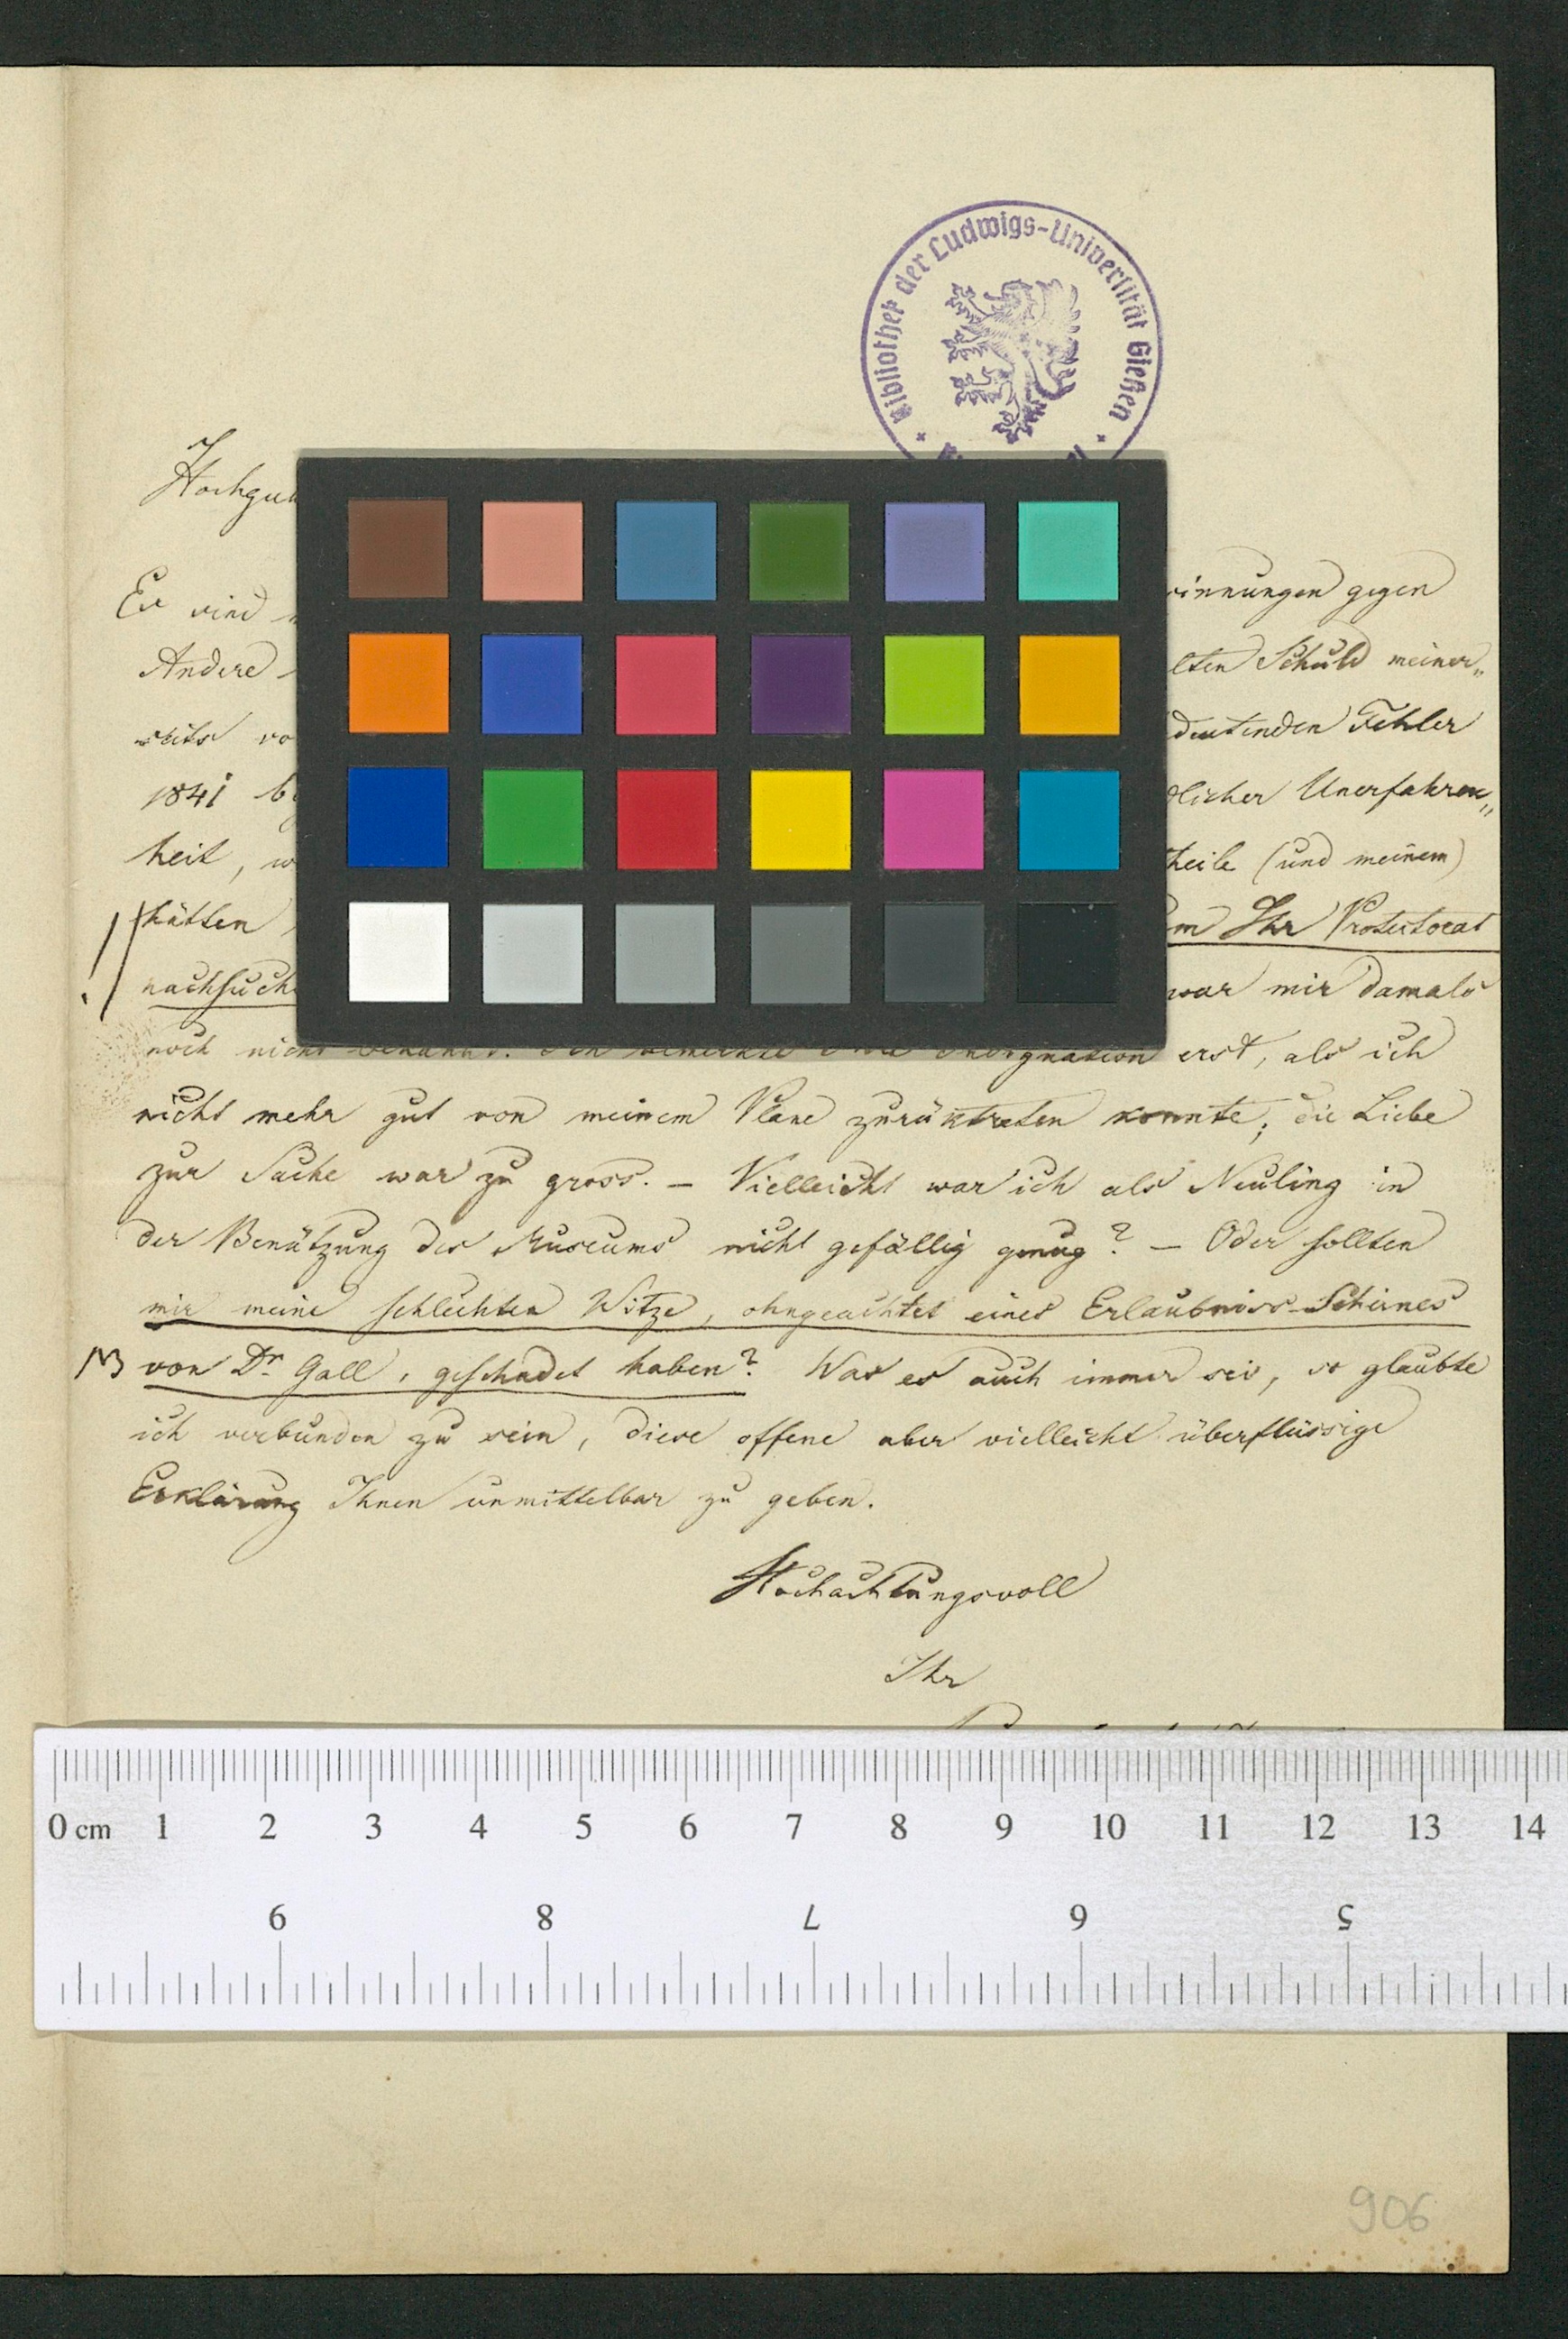 Bibliothek der Ludwigs-Universität Gießen
Es sind
innungen gegen
Andere
lten Schuld meiner„
seits
deutenden Fehler
1841
dlicher Unerfahren„
heit,
theile (und meinem)
hätten
m Ihr Protectorat
nachsuch
war mir damals
noch nicht bekannt. Ich bemerkte Ihre Indignation erst, als ich
nicht mehr gut von meinem Plane zurüktreten konnte; die Liebe
zur Sache war zu gross. – Vielleicht war ich als Neuling in
der Benützung des Museums nicht gefällig genug? – Oder sollten
mir meine schlechten Witze, ohngeachtet eines Erlaubniss-Scheines
von Dr. Gall, geschadet haben? Was es auch immer sei, so glaubte
ich verbunden zu sein, diese offene aber vielleicht überflüssige
Erklärung Ihnen unmittelbar zu geben.
Hochachtungsvoll
Ihr
0 cm 1 2 3 4 5 6 7 8 9 10 11 12 13 14
9 8 7 6 5
906